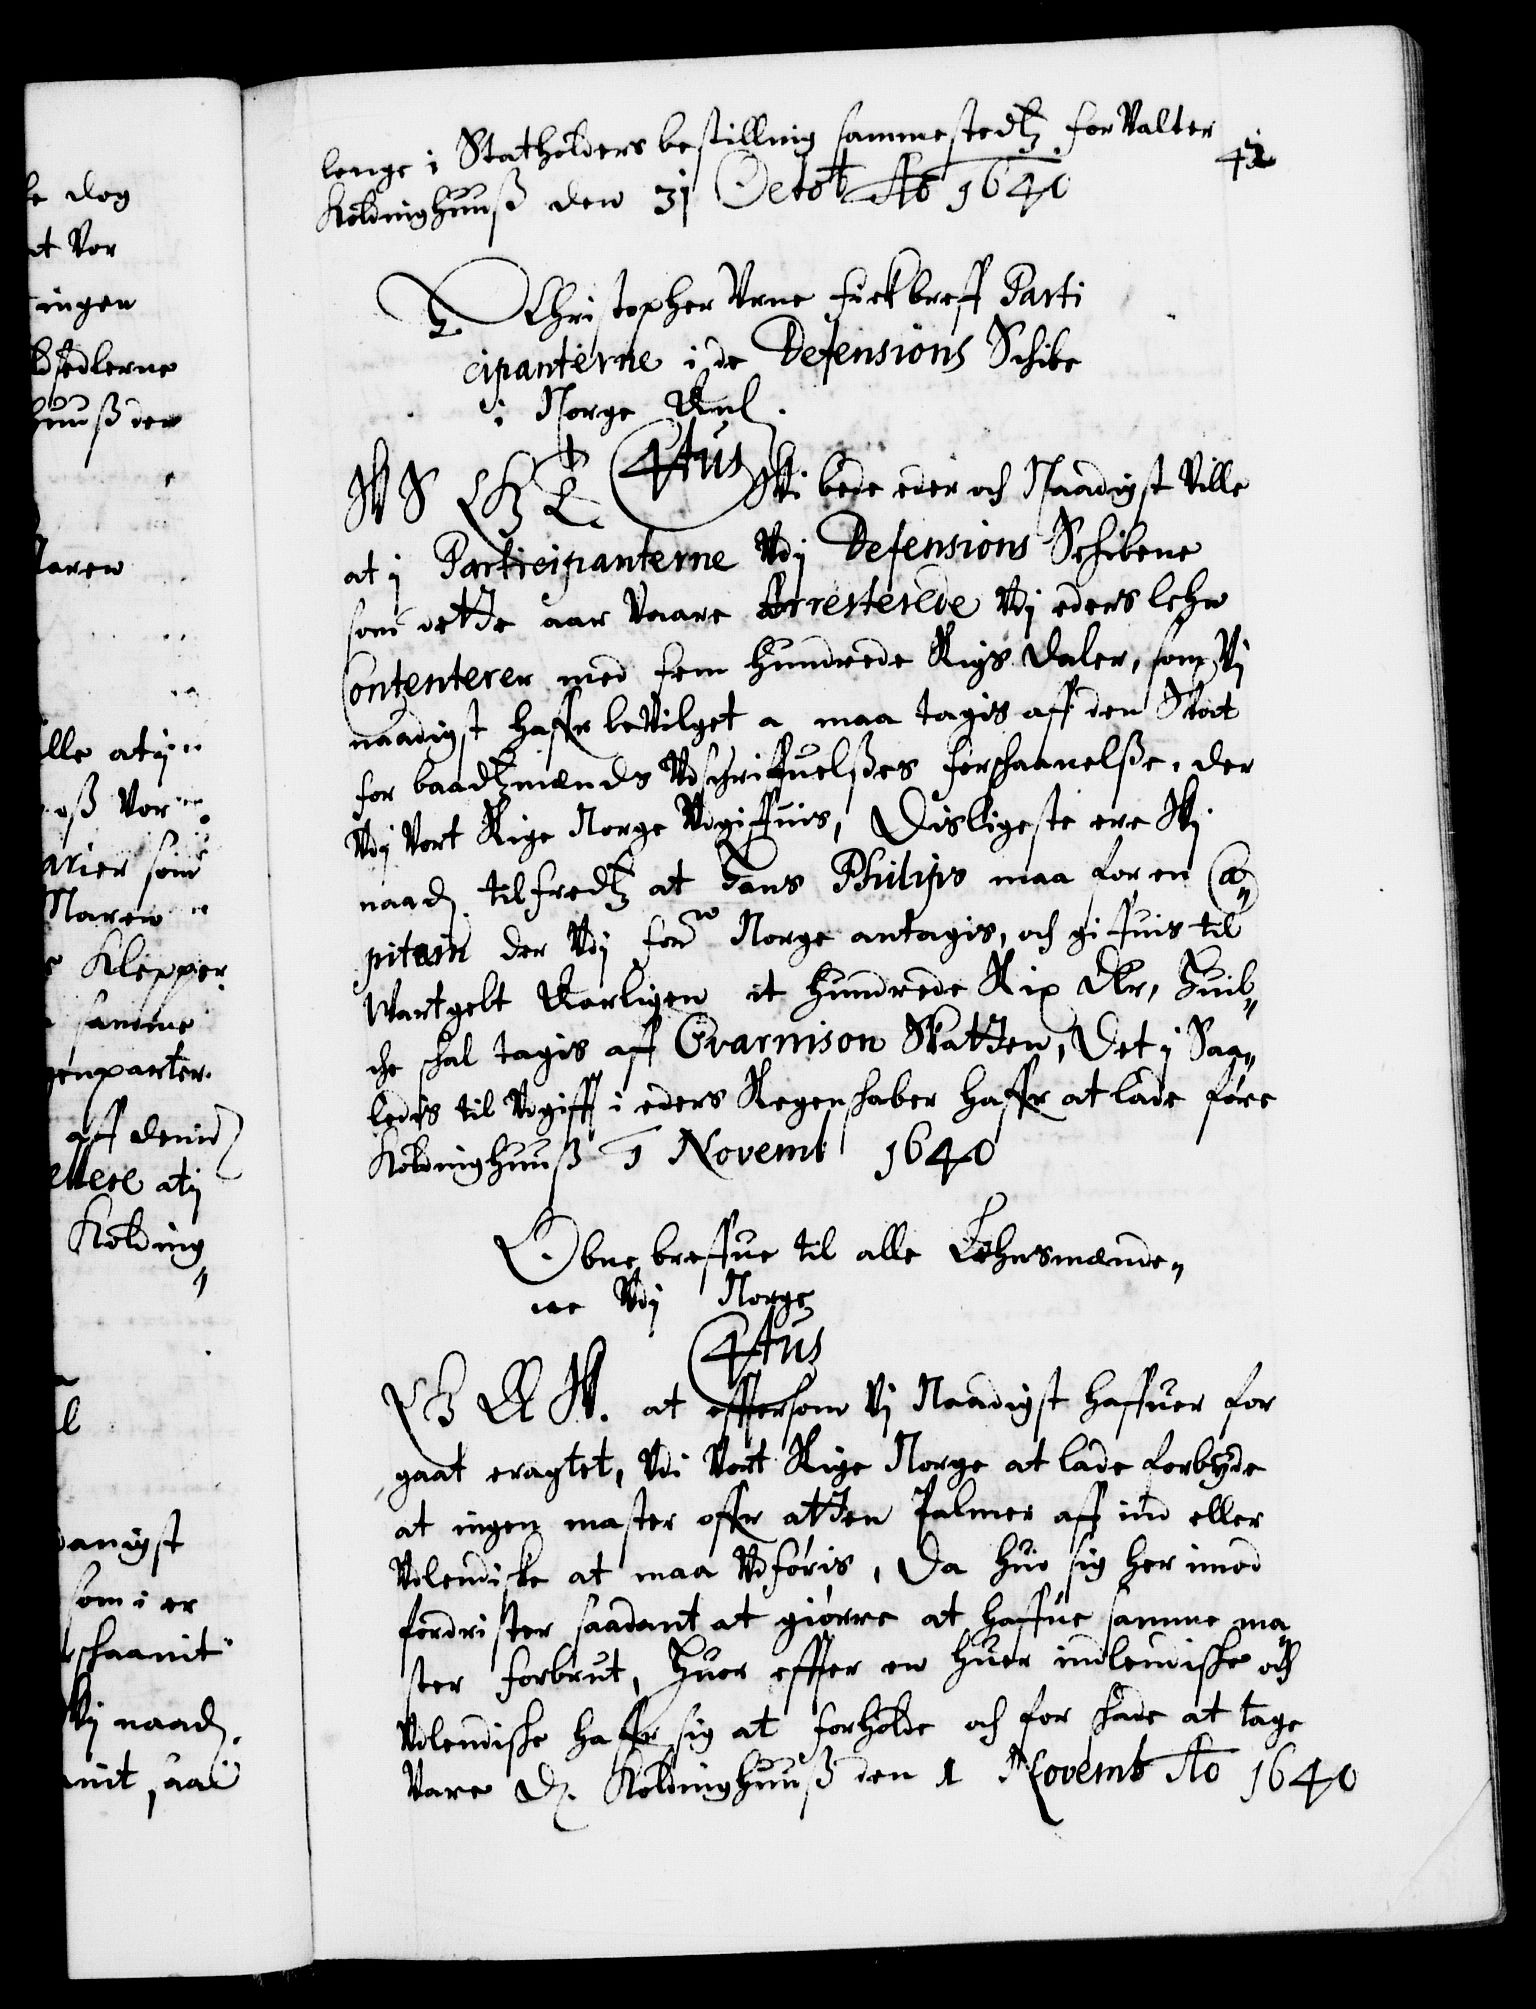 42
lenge i Statholders bestilling sammestedtz forValter
Koldinghuuß den 31 Octob Ao 1640
H. Christopher Urne fick breff Parti
cipanterne i de Defensions Schibe
i Norge Anl.
C4tus
Wi bede eder och Naadigst Ville
at i Participanterne Vdj Defensions Schibene
som dette aar Vaare Arresterede Vdj eders lehn
Contenterer med fem hundrede Rigs daler, som Vj
naadigst haffr beVilget a maa tagis aff den Skat
for baadtzmænds Vdschriffuelßes forschaanelße, der
Vdj Vort Rige Norge Vdgiffuis, Disligeste ere Wj
naad. tilfredtz at Hans Philips maa for en Ca„
pitain der Vdj for.ne Norge antagis, och giffuis til
Wartgelt Aarligen it hundrede Rix Dlr, Huil„
che schal tagis aff Gvarnison Skatten, Det i Saa„
ledis til Vdgifft i eders Regenschaber haffr at lade føre
Koldinghuuß 1 Novemb 1640
Obne breffue til alle Lehnsmænde„
ne Vdj Norge
C4tus
G A W. at effterson Vj Naadigst haffuer for
gaat eragtet, Vdi Vort Rige Norge at lade forbyde
at ingen master offr atten Palmer aff ind eller
Vdlendiske at maa Vdføris, Da huo sig her imod
fordrister saadant at giørre at haffue samme ma
ster forbrut, Huor effter en huer indlendiske och
Vdlendiske haffr sig at forholde och for skade at tage
Vare D. Koldinghuuß den 1 Novemb Ao 1640
dog
at Vor
ingen
sedlerne
huuß den
Maren
ille at j
oß Vor
arier som
Maren
Klepper
samme
genparter.
aff denn
ellere at j
Kolding
„
danigst
som i er
schaanit
Vj naad.